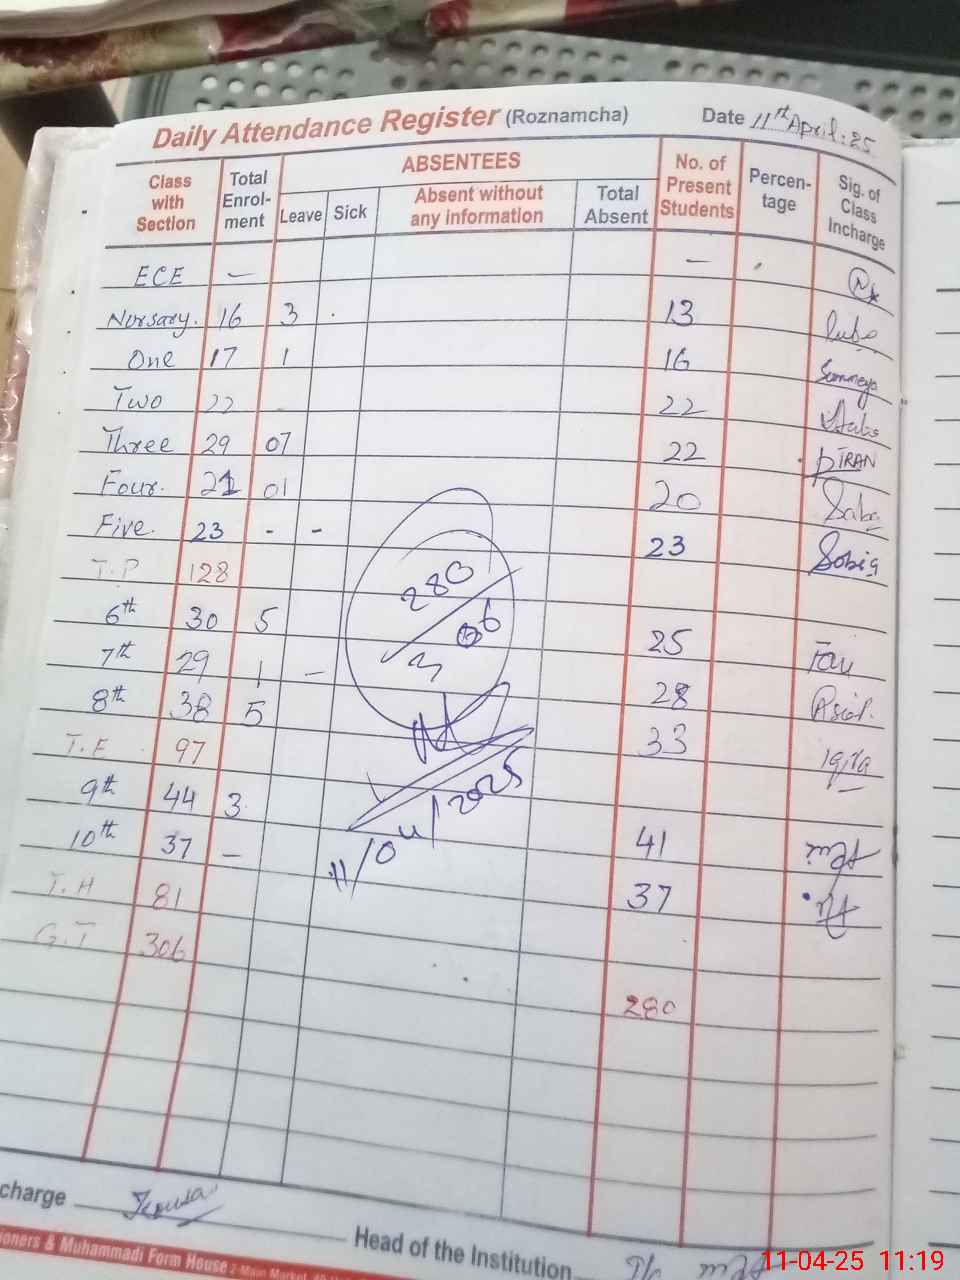 Daily Attendance Register (Roznamcha) Date 11st April:25
Class with Section Total Enrol-ment ABSENTEES Leave Sick Absent without any information Total Absent No. of Present Students Percen-tage Sig. of Class Incharge
ECE — —
Norsary. 16 3 13
One 17 1 16 Summeya
Two 22 - 22
Three 29 07 22
Four. 21 01 20 Saba
Five. 23 - - 23 Sobia
T.P 128
6th 30 5 25
7th 29 1 — 28
8th 38 5 33 Iqra
T.E 97
9th 44 3 41
10th 37 — 37
T.H 81
G.T 306
280
280/306
11/04/2025
charge
Head of the Institution
ioners & Muhammadi Form House 2-Main Market,
11-04-25 11:19